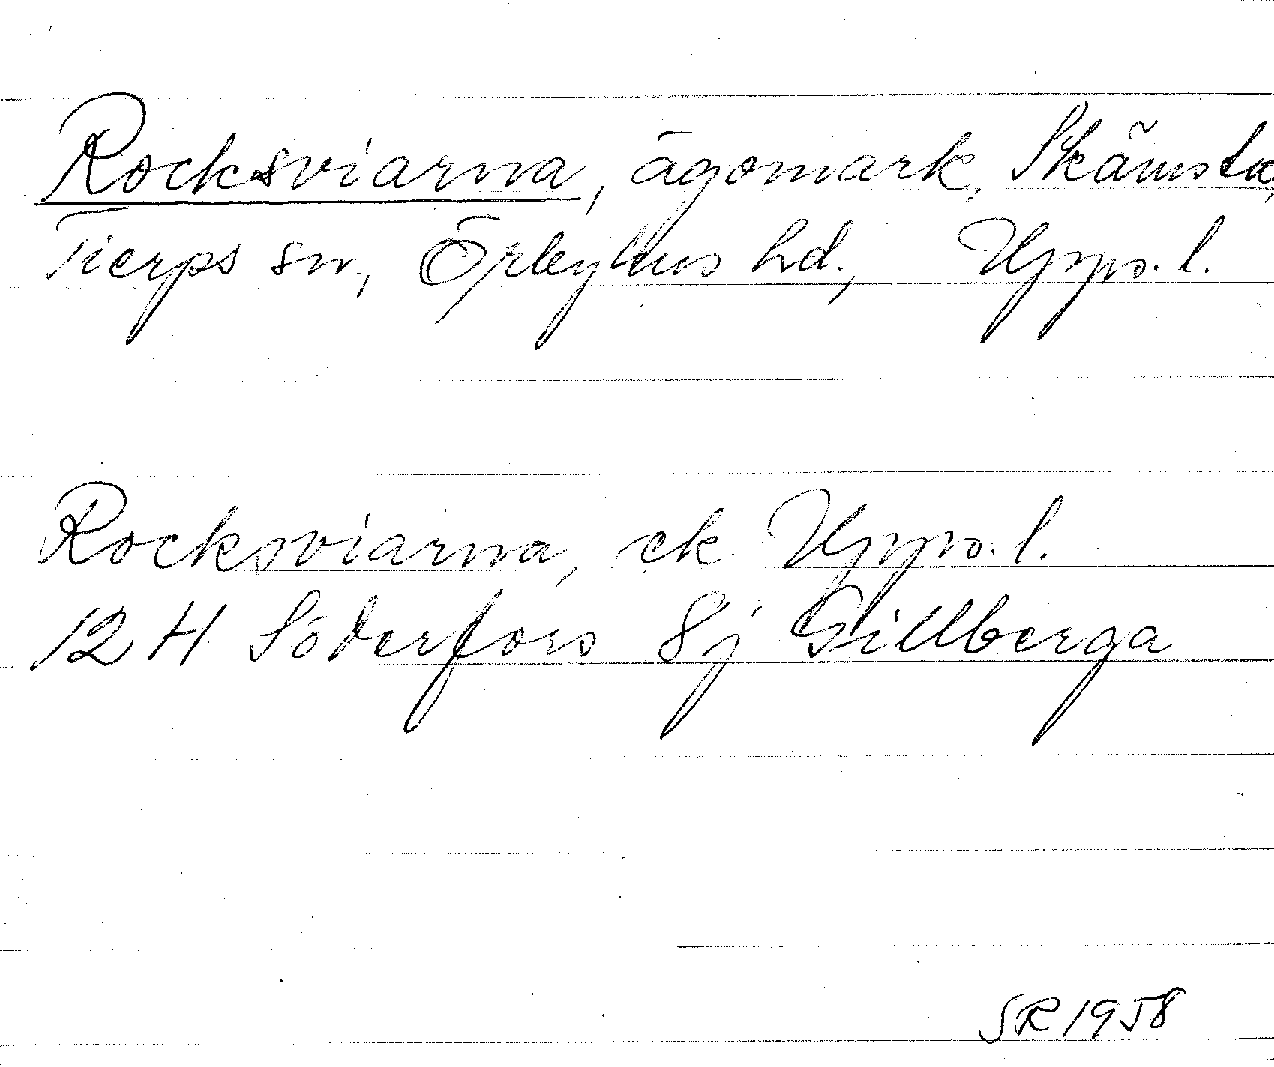 Rocksviarna, ägomark, Skämsta,
Tierps sn, Örbyhus hd., Upps. l.
Rocksviarna, ek Upps. l.
12 H Söderfors 8j Gillberga
SR 1958